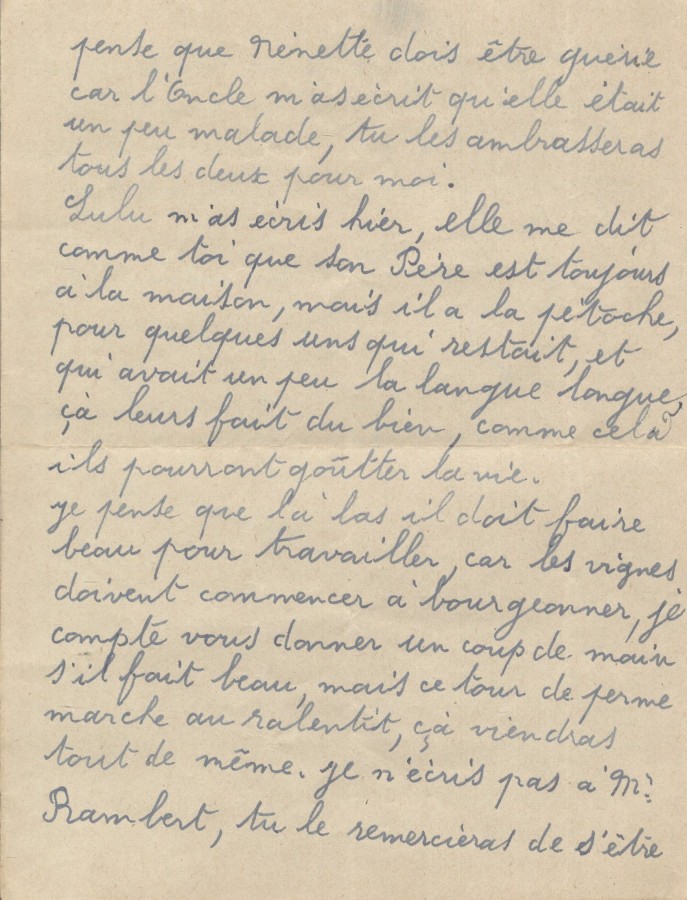 pense que Nénette dois être guérie
car l'Oncle m'as écrit qu'elle était
un peu malade, tu les ambrasseras
tous les deux pour moi.
Lulu m'as écris hier, elle me dit
comme toi que son Père est toujours
à la maison, mais il a la pétoche,
pour quelques uns qui restait, et
qui avait un peu la langue longue,
çà leurs fait du bien, comme celà
ils pourront goûtter la vie.
je pense que là bas il doit faire
beau pour travailler, car les vignes
doivent commencer à bourgeonner, je
compte vous donner un coup de main
s'il fait beau, mais ce tour de perme
marche au ralentit, çà viendras
tout de même. je n'écris pas à Mr
Rambert, tu le remercieras de s'être